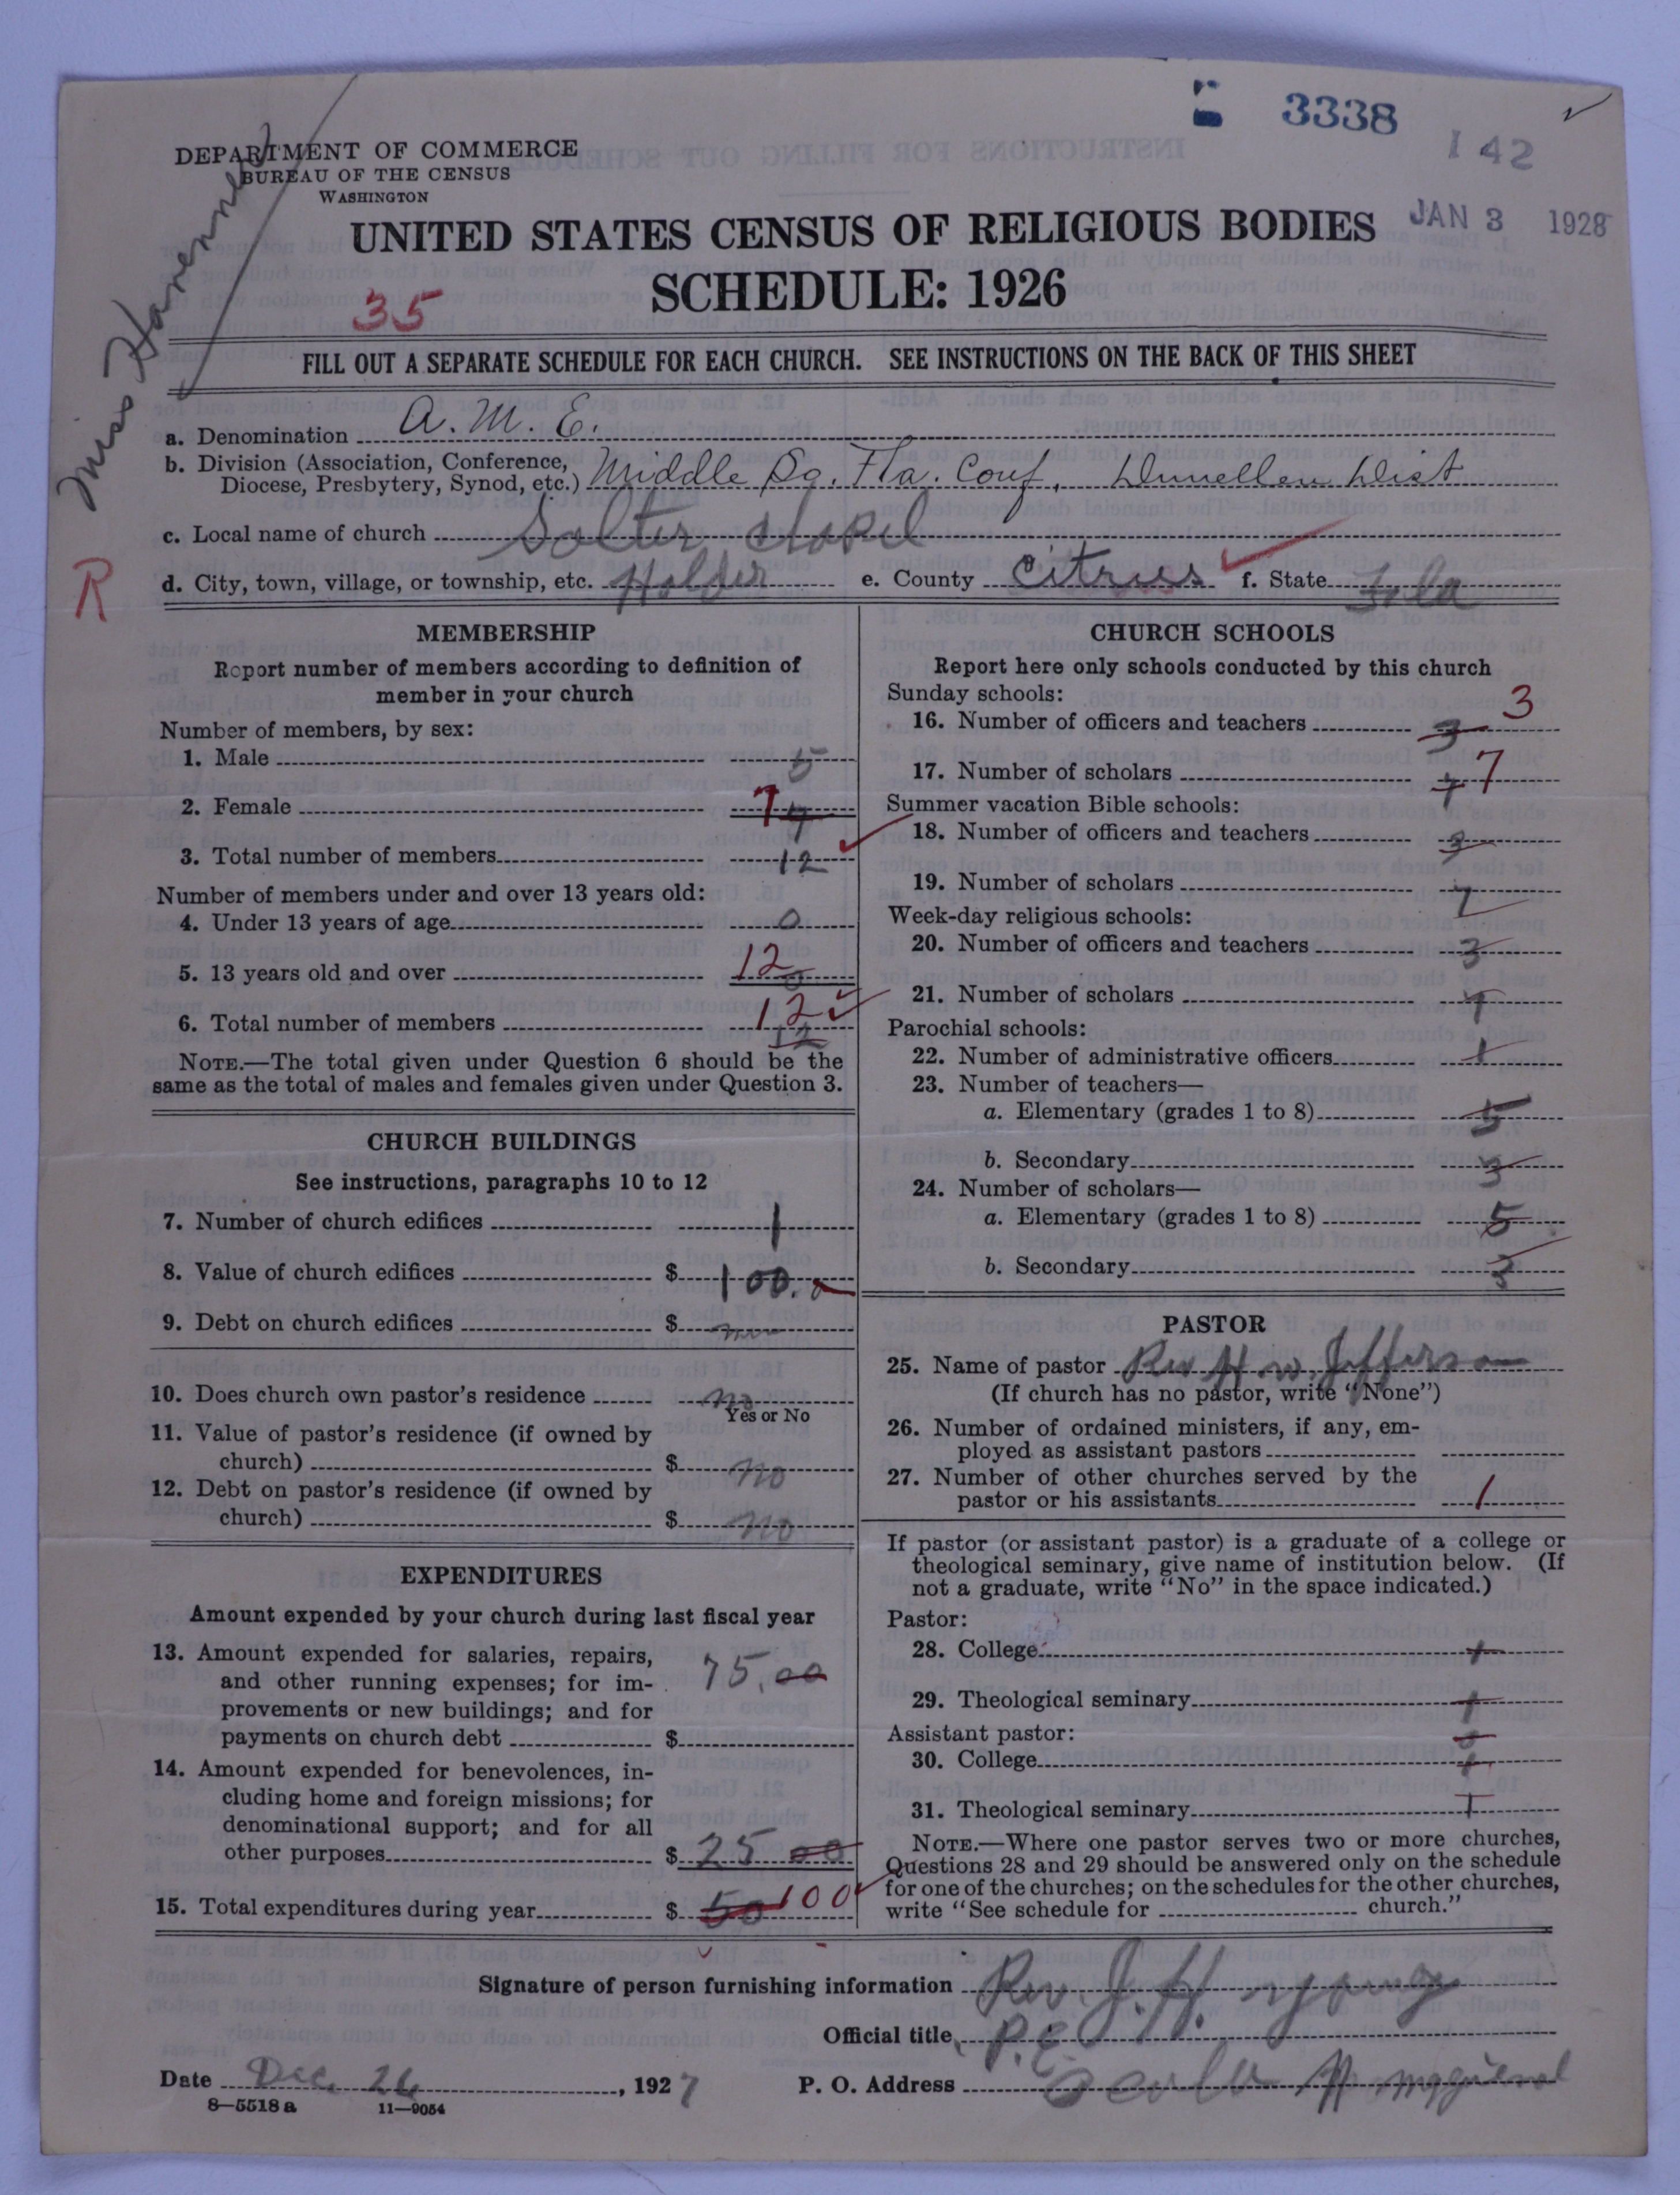 3338
142
DEPARTMENT OF COMMERCE
BUREAU OF THE CENSUS
WASHINGTON
JAN 3 1928
UNITED STATES CENSUS OF RELIGIOUS BODIES
SCHEDULE: 1926
35
Miss
R
FILL OUT A SEPARATE SCHEDULE FOR EACH CHURCH. SEE INSTRUCTIONS ON THE BACK OF THIS SHEET
a. Denomination A. M. E.
b. Division (Association, Conference, Diocese, Presbytery, Synod, etc.) Middle Fla. Conf, Dunellen Dist
c. Local name of church Salter Chapel
d. City, town, village, or township, etc. Holder e. County Citrus f. State Fla
MEMBERSHIP
Report number of members according to definition of
member in your church
Number of members, by sex:
1. Male 5
2. Female 7 7
3. Total number of members 12
Number of members under and over 13 years old:
4. Under 13 years of age 0
5. 13 years old and over 12 0
6. Total number of members 12 12
NOTE.—The total given under Question 6 should be the
same as the total of males and females given under Question 3.
CHURCH BUILDINGS
See instructions, paragraphs 10 to 12
7. Number of church edifices 1
8. Value of church edifices $ 100.
9. Debt on church edifices $
10. Does church own pastor's residence no
Yes or No
11. Value of pastor's residence (if owned by
church) $ no
12. Debt on pastor's residence (if owned by
church) $ no
EXPENDITURES
Amount expended by your church during last fiscal year
13. Amount expended for salaries, repairs,
and other running expenses; for im-
provements or new buildings; and for
payments on church debt $ 75.00
14. Amount expended for benevolences, in-
cluding home and foreign missions; for
denominational support; and for all
other purposes $ 25 00
15. Total expenditures during year $ 50 100
CHURCH SCHOOLS
Report here only schools conducted by this church
Sunday schools:
16. Number of officers and teachers 3 3
17. Number of scholars 7 7
Summer vacation Bible schools:
18. Number of officers and teachers 3
19. Number of scholars 7
Week-day religious schools:
20. Number of officers and teachers 3
21. Number of scholars 7
Parochial schools:
22. Number of administrative officers 1
23. Number of teachers—
a. Elementary (grades 1 to 8) 5
b. Secondary 3
24. Number of scholars—
a. Elementary (grades 1 to 8) 5
b. Secondary 3
PASTOR
25. Name of pastor Rev H. W. Jefferson
(If church has no pastor, write "None")
26. Number of ordained ministers, if any, em-
ployed as assistant pastors
27. Number of other churches served by the
pastor or his assistants 1
If pastor (or assistant pastor) is a graduate of a college or
theological seminary, give name of institution below. (If
not a graduate, write "No" in the space indicated.)
Pastor:
28. College 1
29. Theological seminary 1
Assistant pastor:
30. College
31. Theological seminary 1
NOTE.—Where one pastor serves two or more churches,
Questions 28 and 29 should be answered only on the schedule
for one of the churches; on the schedules for the other churches,
write "See schedule for church."
Signature of person furnishing information Rev. J. H. Young
Official title P. E.
Date Dec. 26, 1927 P. O. Address Ocala
8—5518 a 11—9054